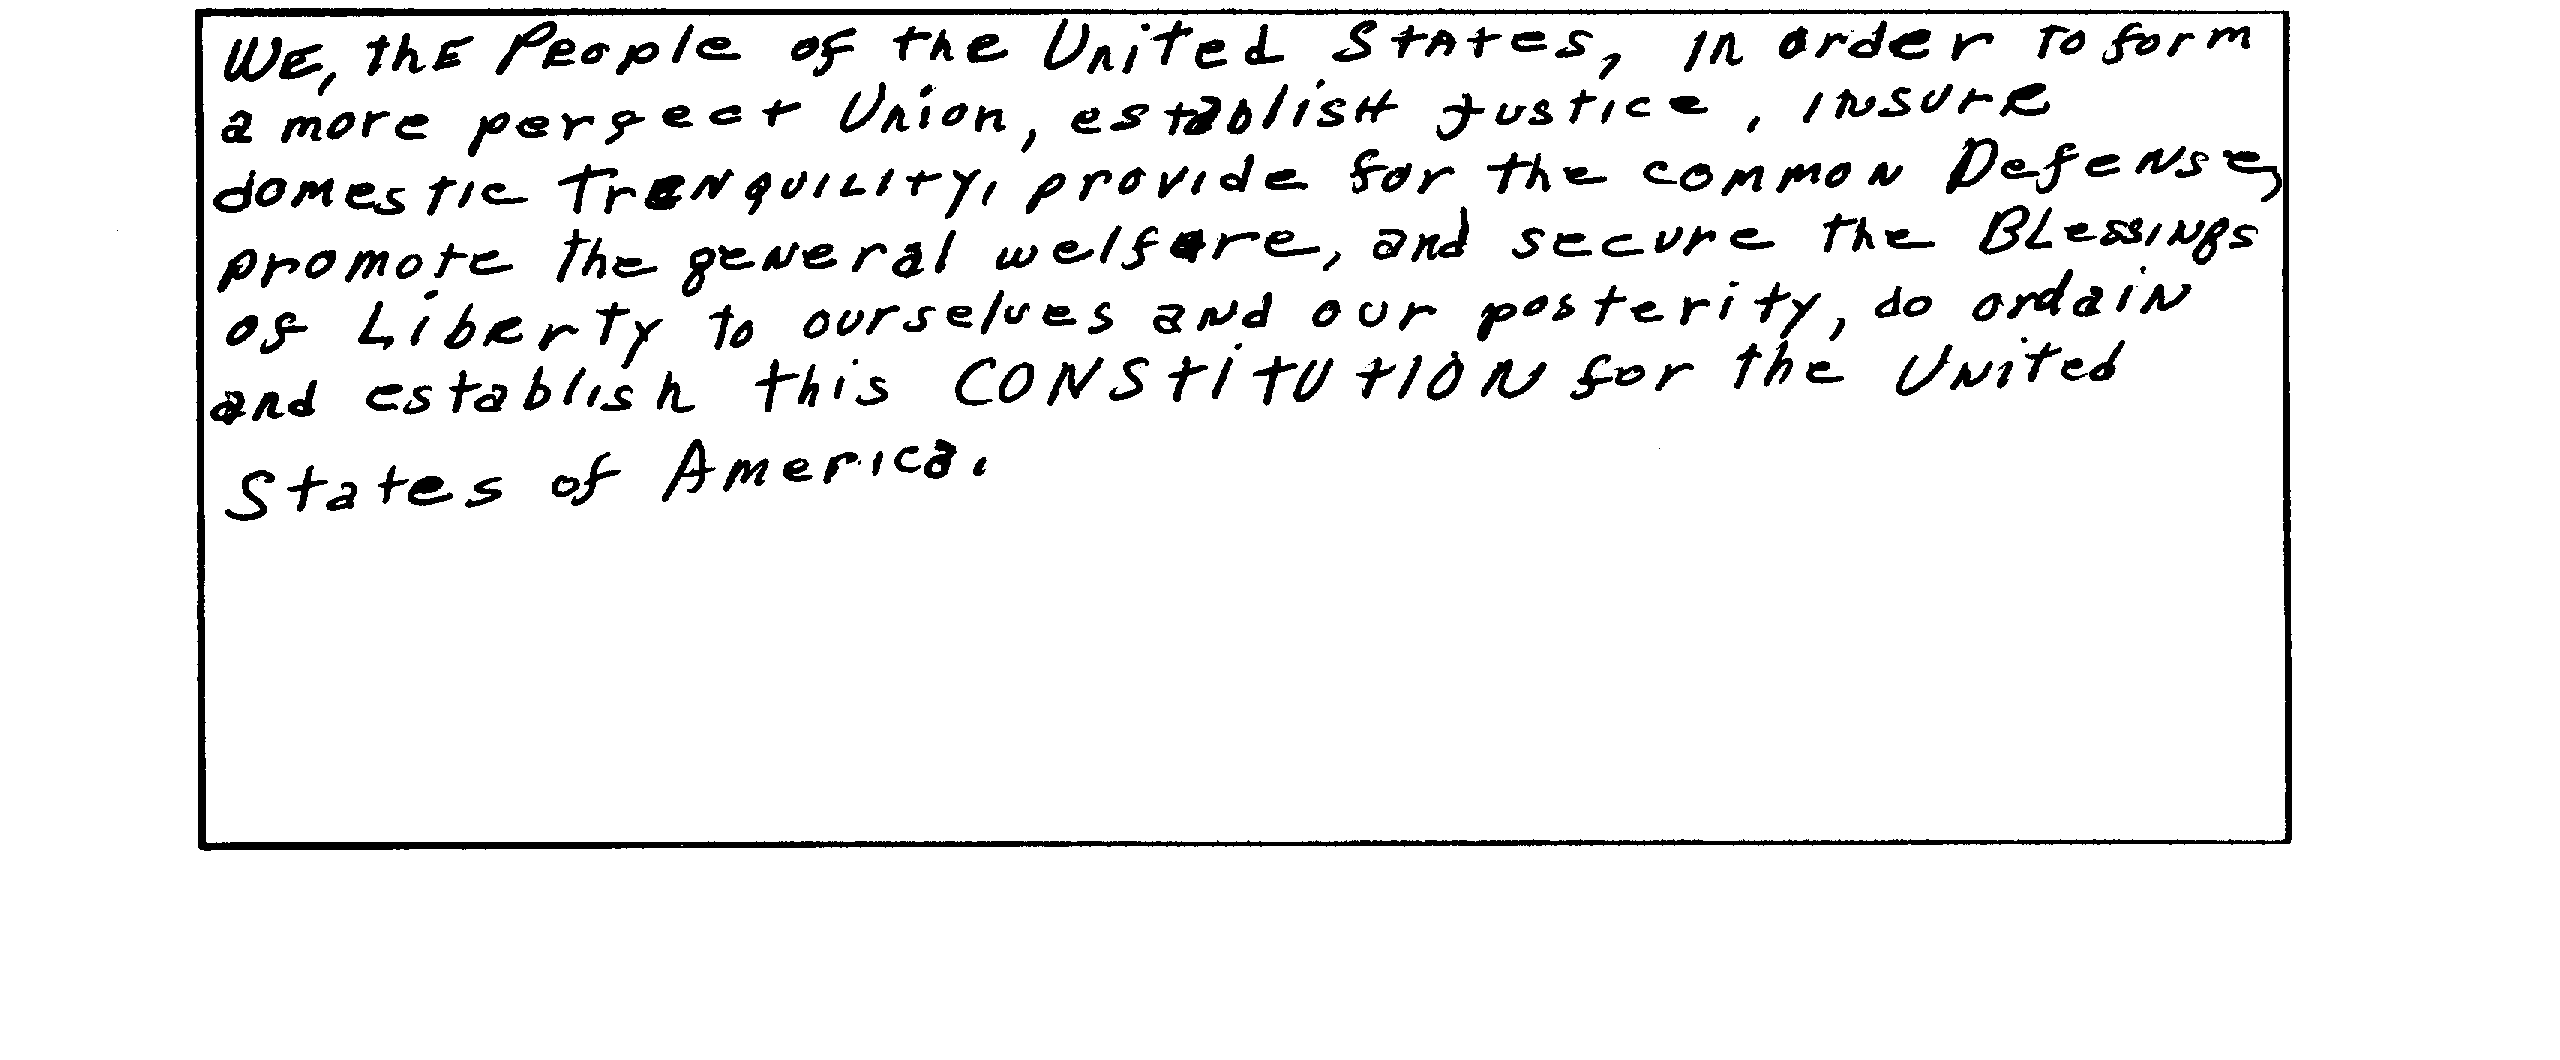 WE, thE PEople of the United StAtes, IN order to form
a more perfect Union, establisH justice, INSURE
domestic TrENQUILITY, provide for the common DefeNse,
promote the geNeral welfare, and secure the BLessINgs
of LibERTy to ourselves aNd our posterity, do ordaiN
and establish this CONSTITUTION for the UNited
States of America.